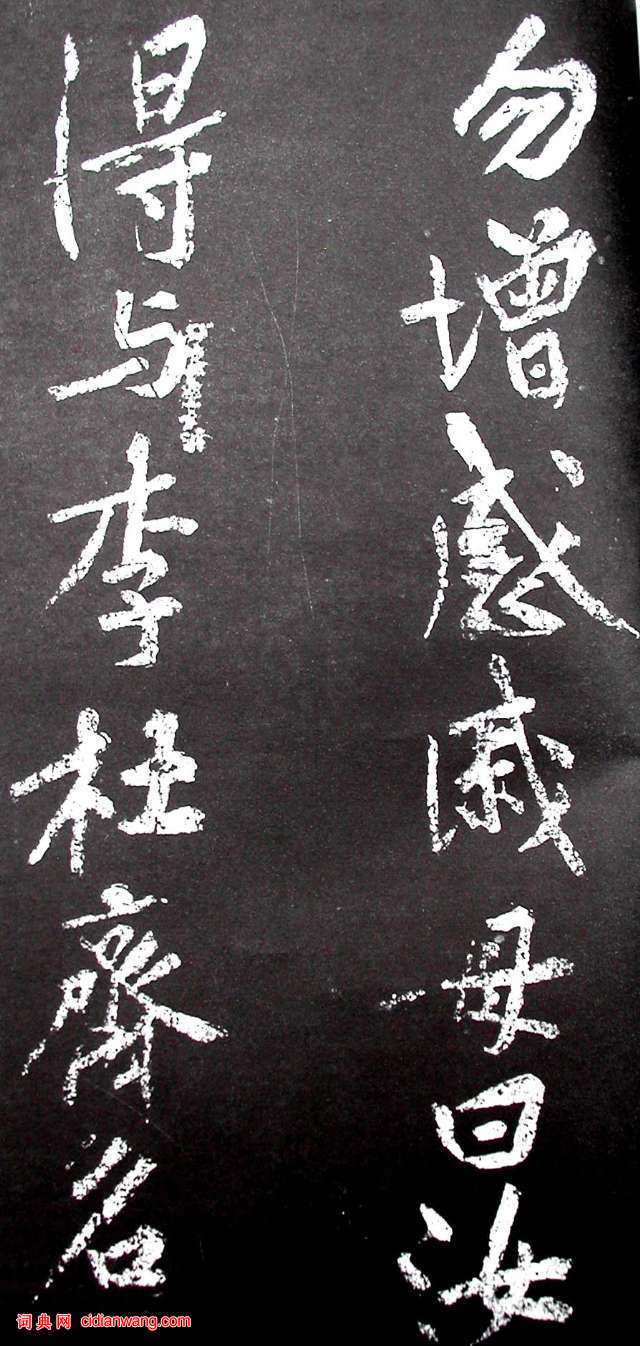 勿增感戚母曰汝
得与李杜齊名
词典网 cidianwang.com